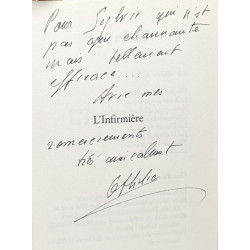 Pour Sylvie qui n'est
pas que charmante
mais tellement
efficace
Avec mes
L'Infirmière
remerciements
très amicalement